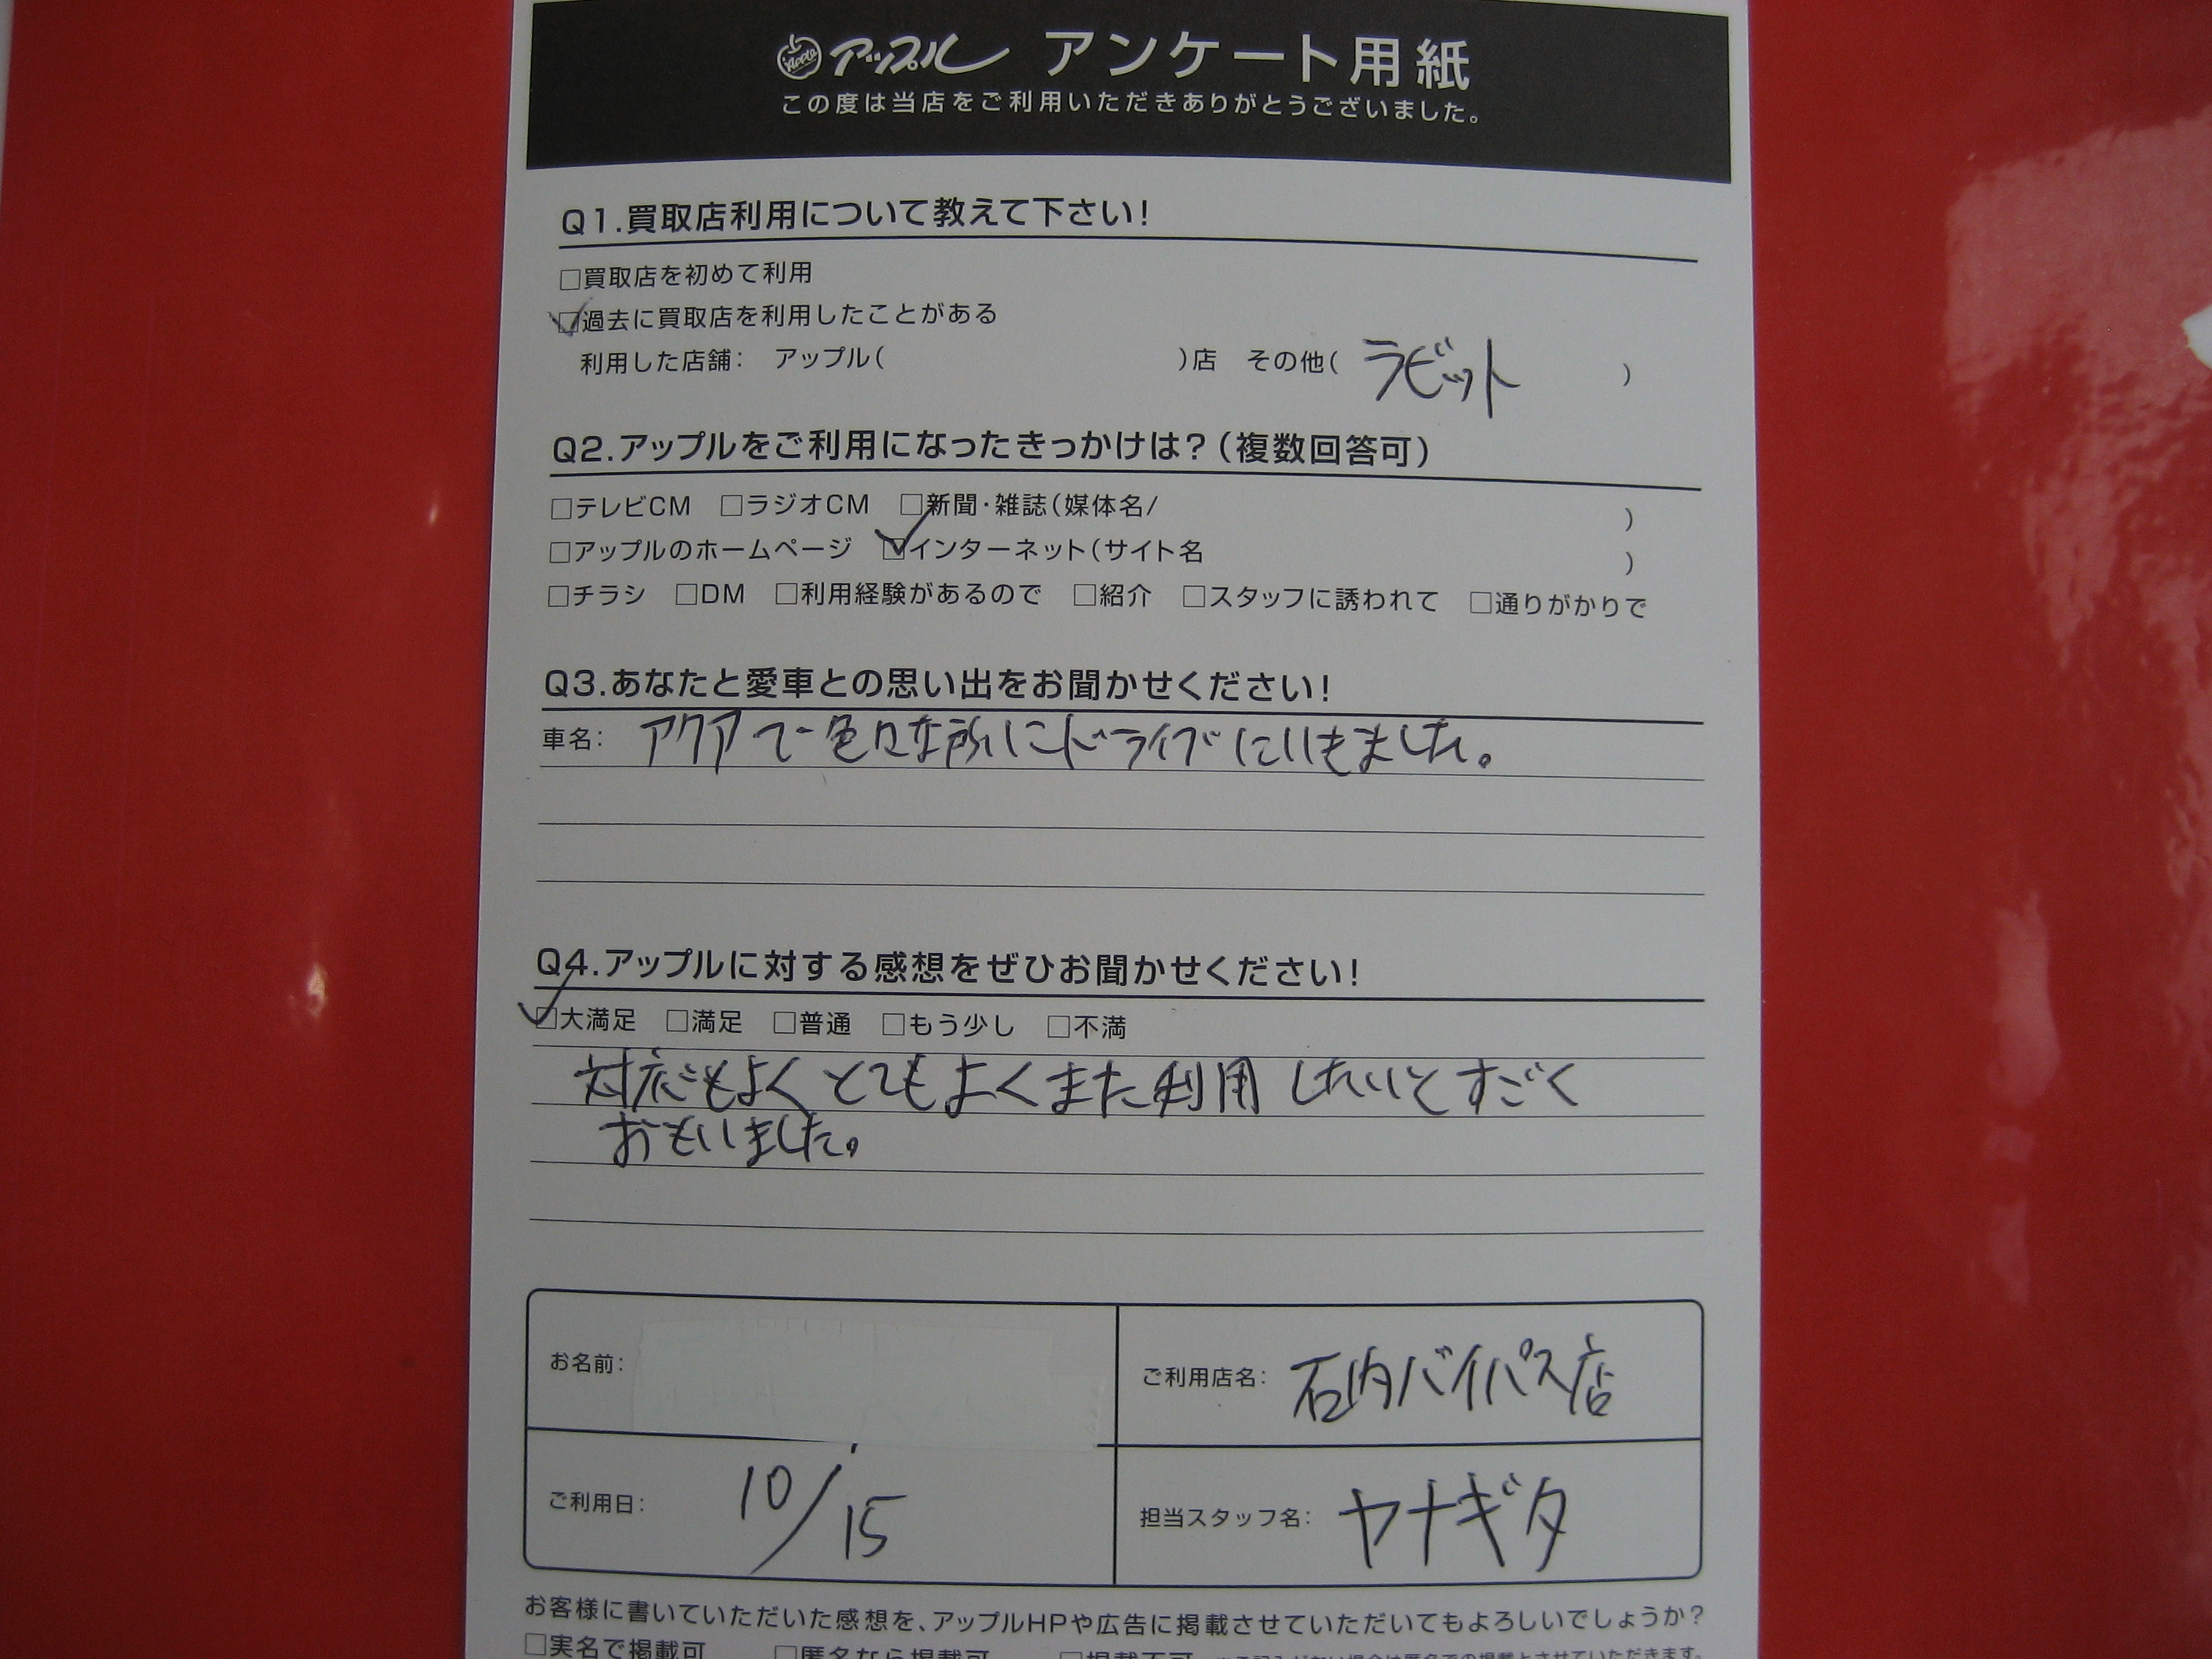 Apple アップル アンケート用紙
この度は当店をご利用いただきありがとうございました。
Q1.買取店利用について教えて下さい!
□買取店を初めて利用
☑過去に買取店を利用したことがある
利用した店舗: アップル( )店 その他( ラビット )
Q2.アップルをご利用になったきっかけは?(複数回答可)
□テレビCM □ラジオCM □新聞・雑誌(媒体名/ )
□アップルのホームページ ☑インターネット(サイト名 )
□チラシ □DM □利用経験があるので □紹介 □スタッフに誘われて □通りがかりで
Q3.あなたと愛車との思い出をお聞かせください!
車名: アクアで色々な所にドライブにいきました。
Q4.アップルに対する感想をぜひお聞かせください!
☑大満足 □満足 □普通 □もう少し □不満
対応もよくとてもよくまた利用したいとすごく
おもいました。
お名前:
ご利用店名: 石内バイパス店
ご利用日: 10/15
担当スタッフ名: ヤナギタ
お客様に書いていただいた感想を、アップルHPや広告に掲載させていただいてもよろしいでしょうか?
□実名で掲載可 □匿名なら掲載可 □掲載不可